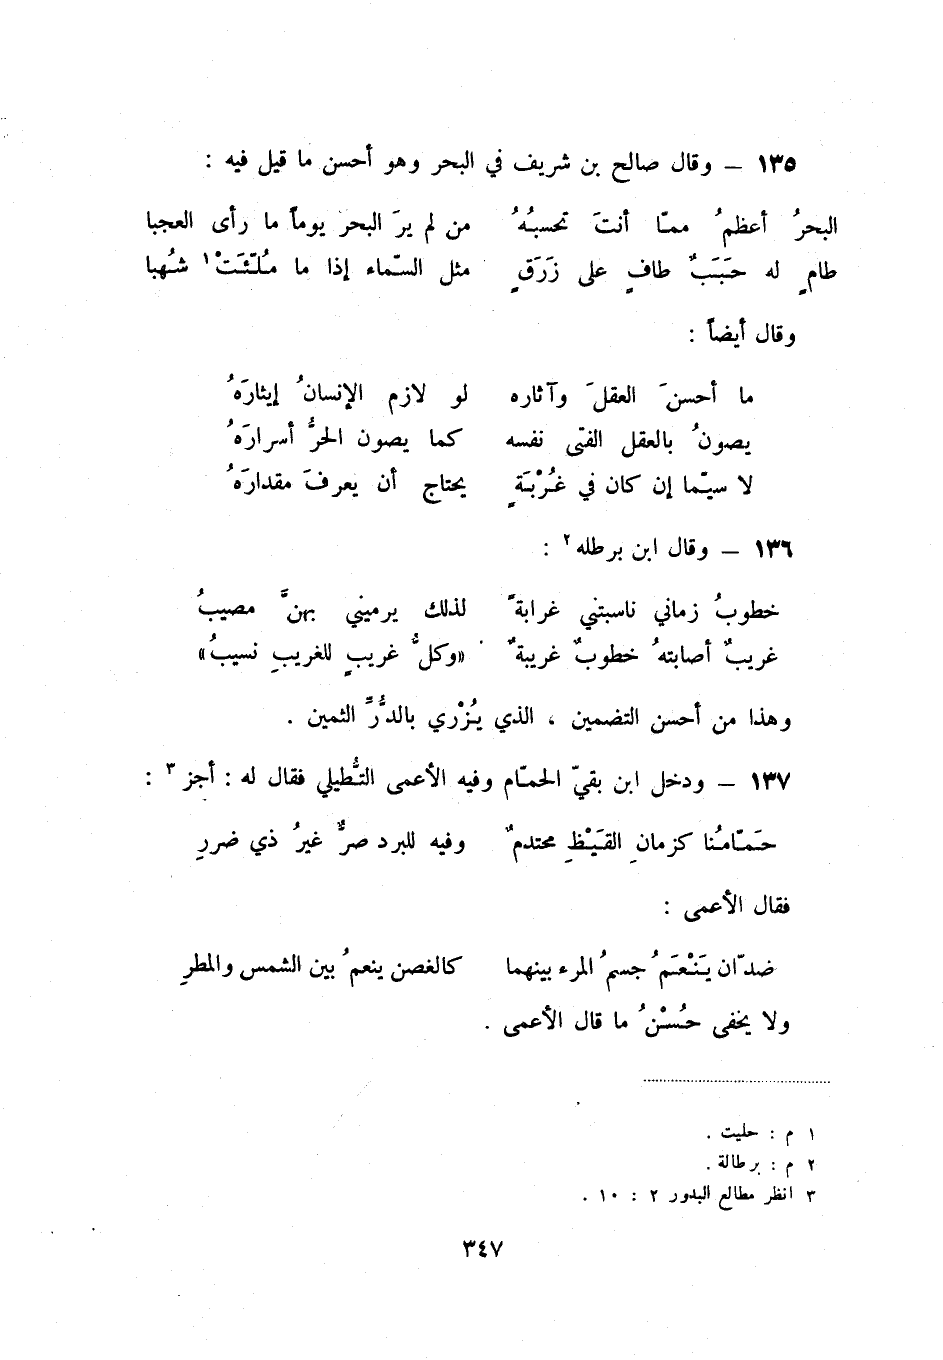 ١٣٥ – وقال صالح بن شريف في البحر وهو أحسن ما قيل فيه :
البحرُ أعظمُ ممّا أنتَ تحسبُهُ من لم يرَ البحر يوماً ما رأى العجبا
طامٍ له حَبَبٌ طافٍ على زَرَقٍ مثل السّماء إذا ما مُلّئَتْ ١ شُهبا
وقال أيضاً :
ما أحسنَ العقلَ وآثاره لو لازم الإنسانُ إيثارَهُ
يصونُ بالعقل الفتى نفسه كما يصون الحرُّ أسرارَهُ
لا سيّما إن كان في غُرْبَةٍ يحتاج أن يعرفَ مقدارَهُ
١٣٦ – وقال ابن برطله ٢ :
خطوبُ زماني ناسبتني غرابةً لذلك يرميني بهنَّ مصيبُ
غريبٌ أصابتهُ خطوبٌ غريبةٌ «وكلُّ غريبٍ للغريبِ نسيبُ»
وهذا من أحسن التضمين ، الذي يُزْري بالدُّرِّ الثمين .
١٣٧ – ودخل ابن بقيّ الحمّام وفيه الأعمى التُّطيلي فقال له : أجز ٣ :
حَمّامُنا كزمانِ القَيْظِ محتدمٌ وفيه للبرد صرٌّ غيرُ ذي ضررِ
فقال الأعمى :
ضدّان يَنْعَمُ جسمُ المرء بينهما كالغصن ينعمُ بين الشمس والمطرِ
ولا يخفى حُسْنُ ما قال الأعمى .
١ م : حليت .
٢ م : برطالة .
٣ انظر مطالع البدور ٢ : ١٠ .
٣٤٧